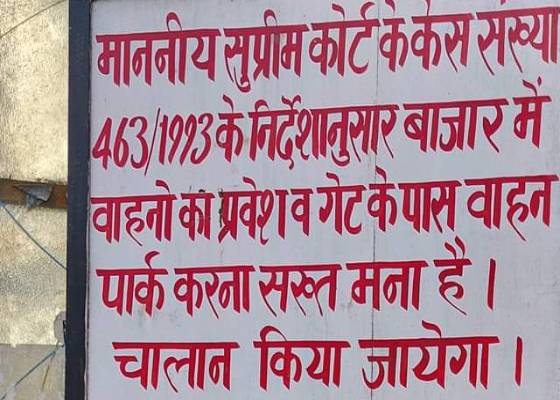 माननीय सुप्रीम कोर्ट के केस संख्या
463/1993 के निर्देशानुसार बाजार में
वाहनो का प्रवेश व गेट के पास वाहन
पार्क करना सख्त मना है ।
चालान किया जायेगा ।